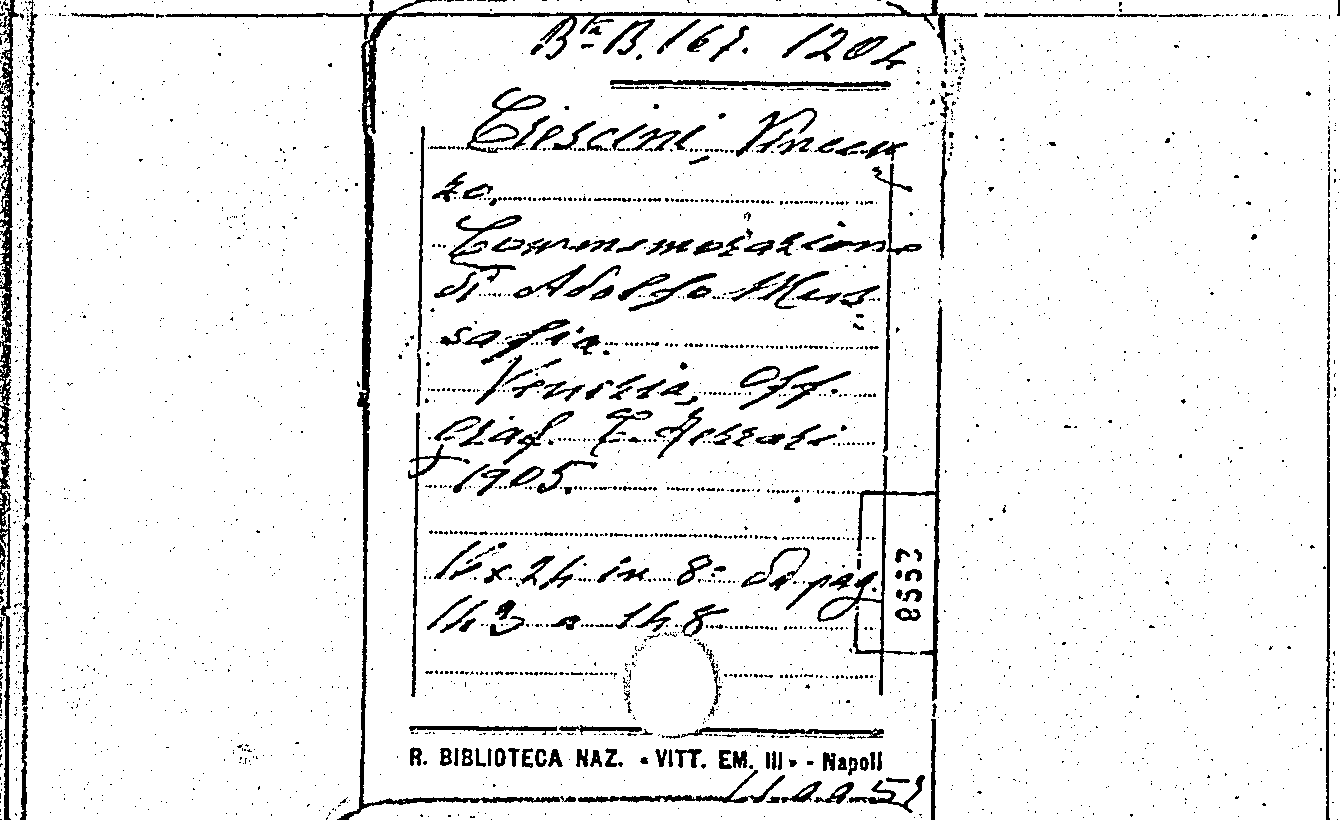 Bta B. 167. 1204
Crescini, Vincen
zo.
Commemorazione
di Adolfo Mus
safia.
Venezia, Off.
graf. C. Ferrari
1905.
in 8° da pag.
143 a 148
8553
R. BIBLIOTECA NAZ. « VITT. EM. III » - Napoli